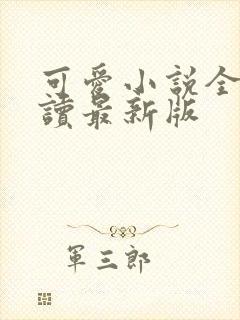 可愛小說全
讀最新版
軍三郎